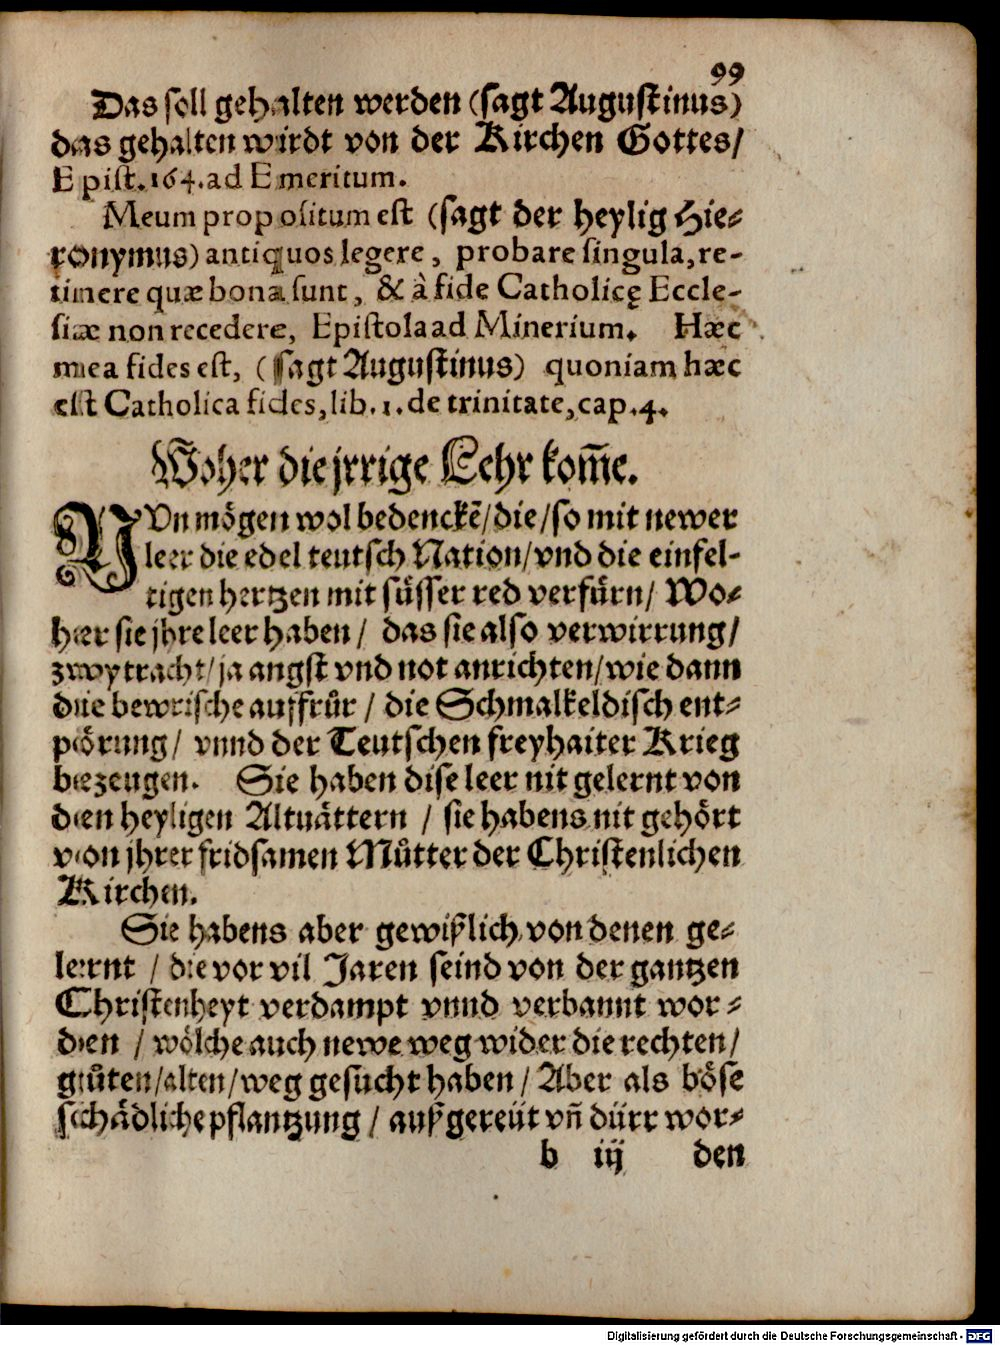 99
Das soll gehalten werden (sagt Augustinus)
das gehalten wirdt von der Kirchen Gottes/
Epist. 164. ad Emeritum.
Meum propositum est (sagt der heylig Hie⸗
ronymus) antiquos legere, probare singula, re-
tinere quæ bona sunt, & à fide Catholicę Eccle-
siæ non recedere, Epistola ad Minerium. Hæc
mea fides est, (sagt Augustinus) quoniam hæc
est Catholica fides, lib. 1. de trinitate, cap. 4.
Woher die jrrige Lehr kom̃e.
NVn mögen wol bedenckẽ/die/so mit newer
leer die edel teutsch Nation/vnd die einfel-
tigen hertzen mit süsser red verfürn/ Wo⸗
her sie jhre leer haben/ das sie also verwirrung/
zwytracht/ja angst vnd not anrichten/wie dann
die bewrische auffrůr/ die Schmalkeldisch ent⸗
pörung/ vnnd der Teutschen freyhaiter Krieg
bezeugen. Sie haben dise leer nit gelernt von
den heyligen Altuättern / sie habens nit gehört
von jhrer fridsamen Můtter der Christenlichen
Kirchen.
Sie habens aber gewißlich von denen ge⸗
lernt / die vor vil Jaren seind von der gantzen
Christenheyt verdampt vnnd verbannt wor⸗
den / wölche auch newe weg wider die rechten/
gůten/alten/weg gesucht haben/ Aber als böse
schädliche pflantzung / außgereüt vñ dürr wor⸗
b iij den
Digitalisierung gefördert durch die Deutsche Forschungsgemeinschaft - DFG